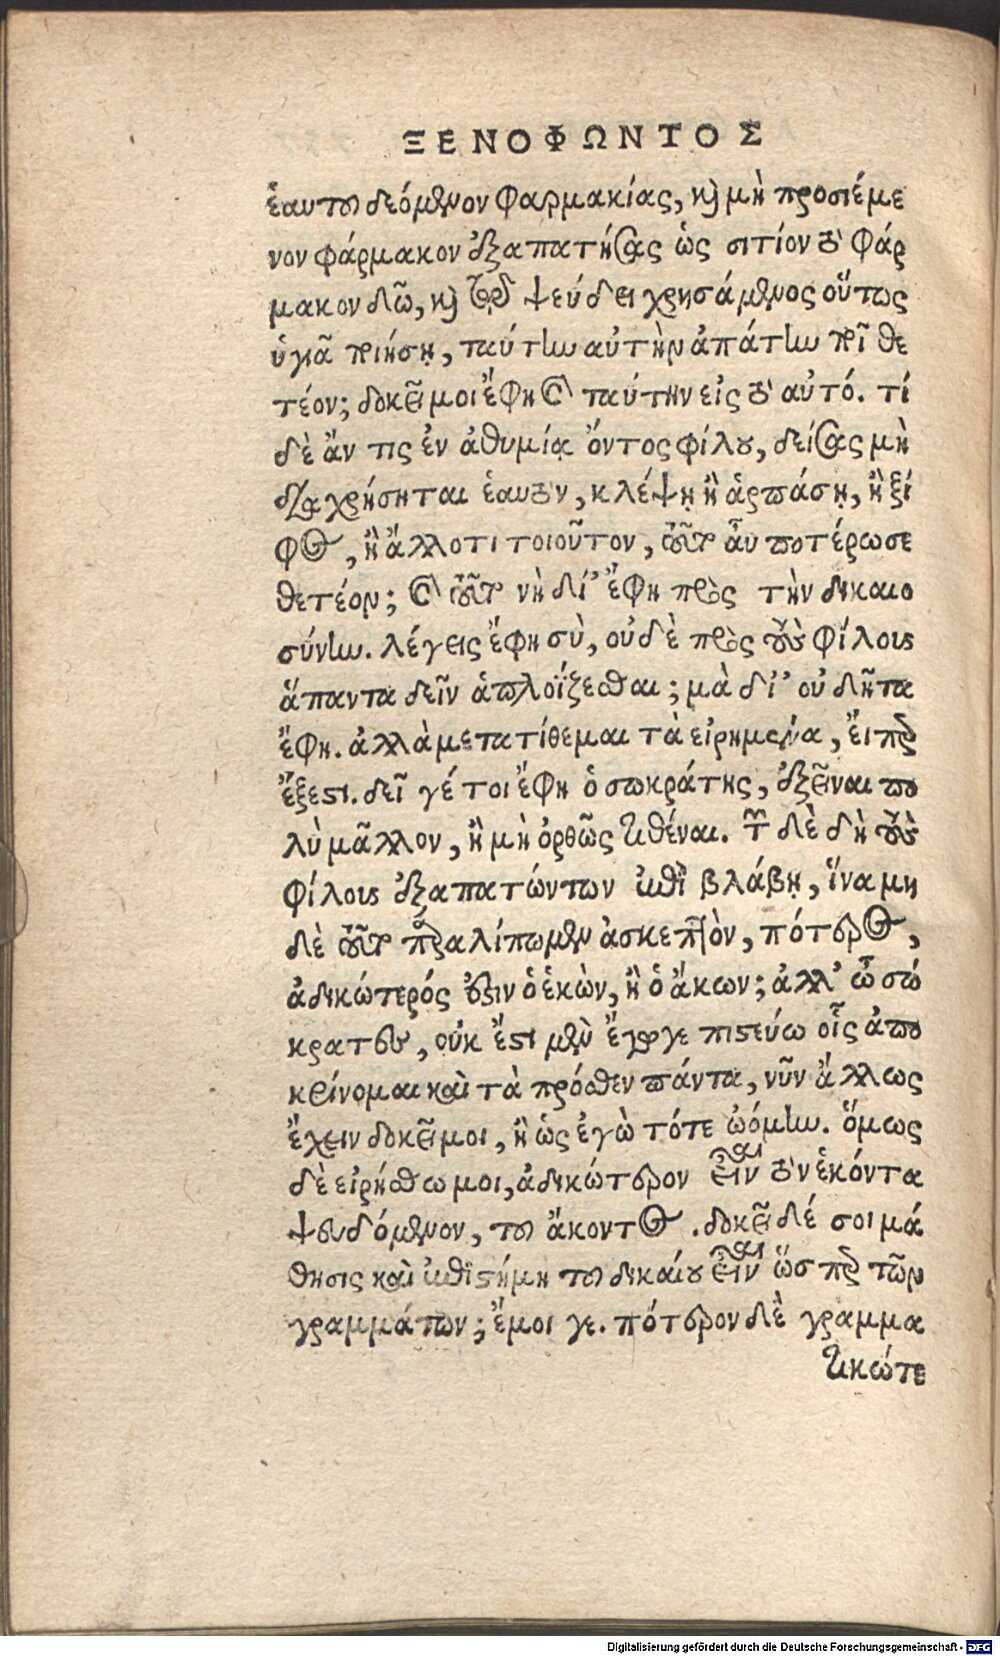 ΞΕΝΟΦΩΝΤΟΣ
ἑαυτοῦ δεόμενον φαρμακίας, καὶ μὴ προσιέμε
νον φάρμακον ἐξαπατήσας ὡς σιτίον τὸ φάρ
μακον δῶ, καὶ τῷ ψεύδει χρησάμενος οὕτως
ὑγιᾶ ποιήσῃ, ταύτην αὐτὴν ἀπάτην ποῖ θε
τέον; δοκεῖ μοι ἔφη καὶ ταύτην εἰς τὸ αὐτό. τί
δὲ ἄν τις ἐν ἀθυμίᾳ ὄντος φίλου, δείσας μὴ
διαχρήσηται ἑαυτὸν, κλέψῃ ἢ ἁρπάσῃ, ἢ ξί
φος, ἢ ἄλλο τι τοιοῦτον, τοῦτο αὖ ποτέρωσε
θετέον; καὶ τοῦτο νὴ δί' ἔφη πρὸς τὴν δικαιο
σύνην. λέγεις ἔφη σὺ, οὐδὲ πρὸς τοὺς φίλους
ἅπαντα δεῖν ἁπλοΐζεσθαι; μὰ δί' οὐ δῆτα
ἔφη. ἀλλὰ μετατίθεμαι τὰ εἰρημένα, εἴπερ
ἔξεστι. δεῖ γέ τοι ἔφη ὁ σωκράτης, ἐξεῖναι πο
λὺ μᾶλλον, ἢ μὴ ὀρθῶς τιθέναι. τῶν δὲ δὴ τοὺς
φίλους ἐξαπατώντων ἐπὶ βλάβῃ, ἵνα μη
δὲ τοῦτο παραλίπωμεν ἄσκεπτον, πότερος,
ἀδικώτερός ἐστιν ὁ ἑκὼν, ἢ ὁ ἄκων; ἀλλ' ὦ σώ
κρατες, οὐκ ἔτι μὲν ἔγωγε πιστεύω οἷς ἀπο
κρίνομαι καὶ τὰ πρόσθεν πάντα, νῦν ἄλλως
ἔχειν δοκεῖ μοι, ἢ ὡς ἐγὼ τότε ᾠόμην. ὅμως
δὲ εἰρήσθω μοι, ἀδικώτερον εἶναι τὸν ἑκόντα
ψευδόμενον, τοῦ ἄκοντος. δοκεῖ δέ σοι μά
θησις καὶ ἐπιστήμη τοῦ δικαίου εἶναι ὥσπερ τῶν
γραμμάτων; ἔμοιγε. πότερον δὲ γραμμα
τικώτε
Digitalisierung gefördert durch die Deutsche Forschungsgemeinschaft - DFG